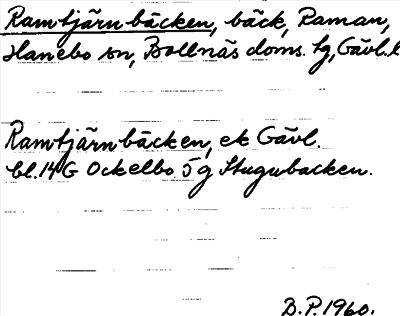 Ramtjärnbäcken, bäck, Raman,
Hanebo sn, Bollnäs doms. tg, Gävl. l
Ramtjärnbäcken, ek Gävl.
bl. 14G Ockelbo 5 g Stugubacken.
B.P. 1960.